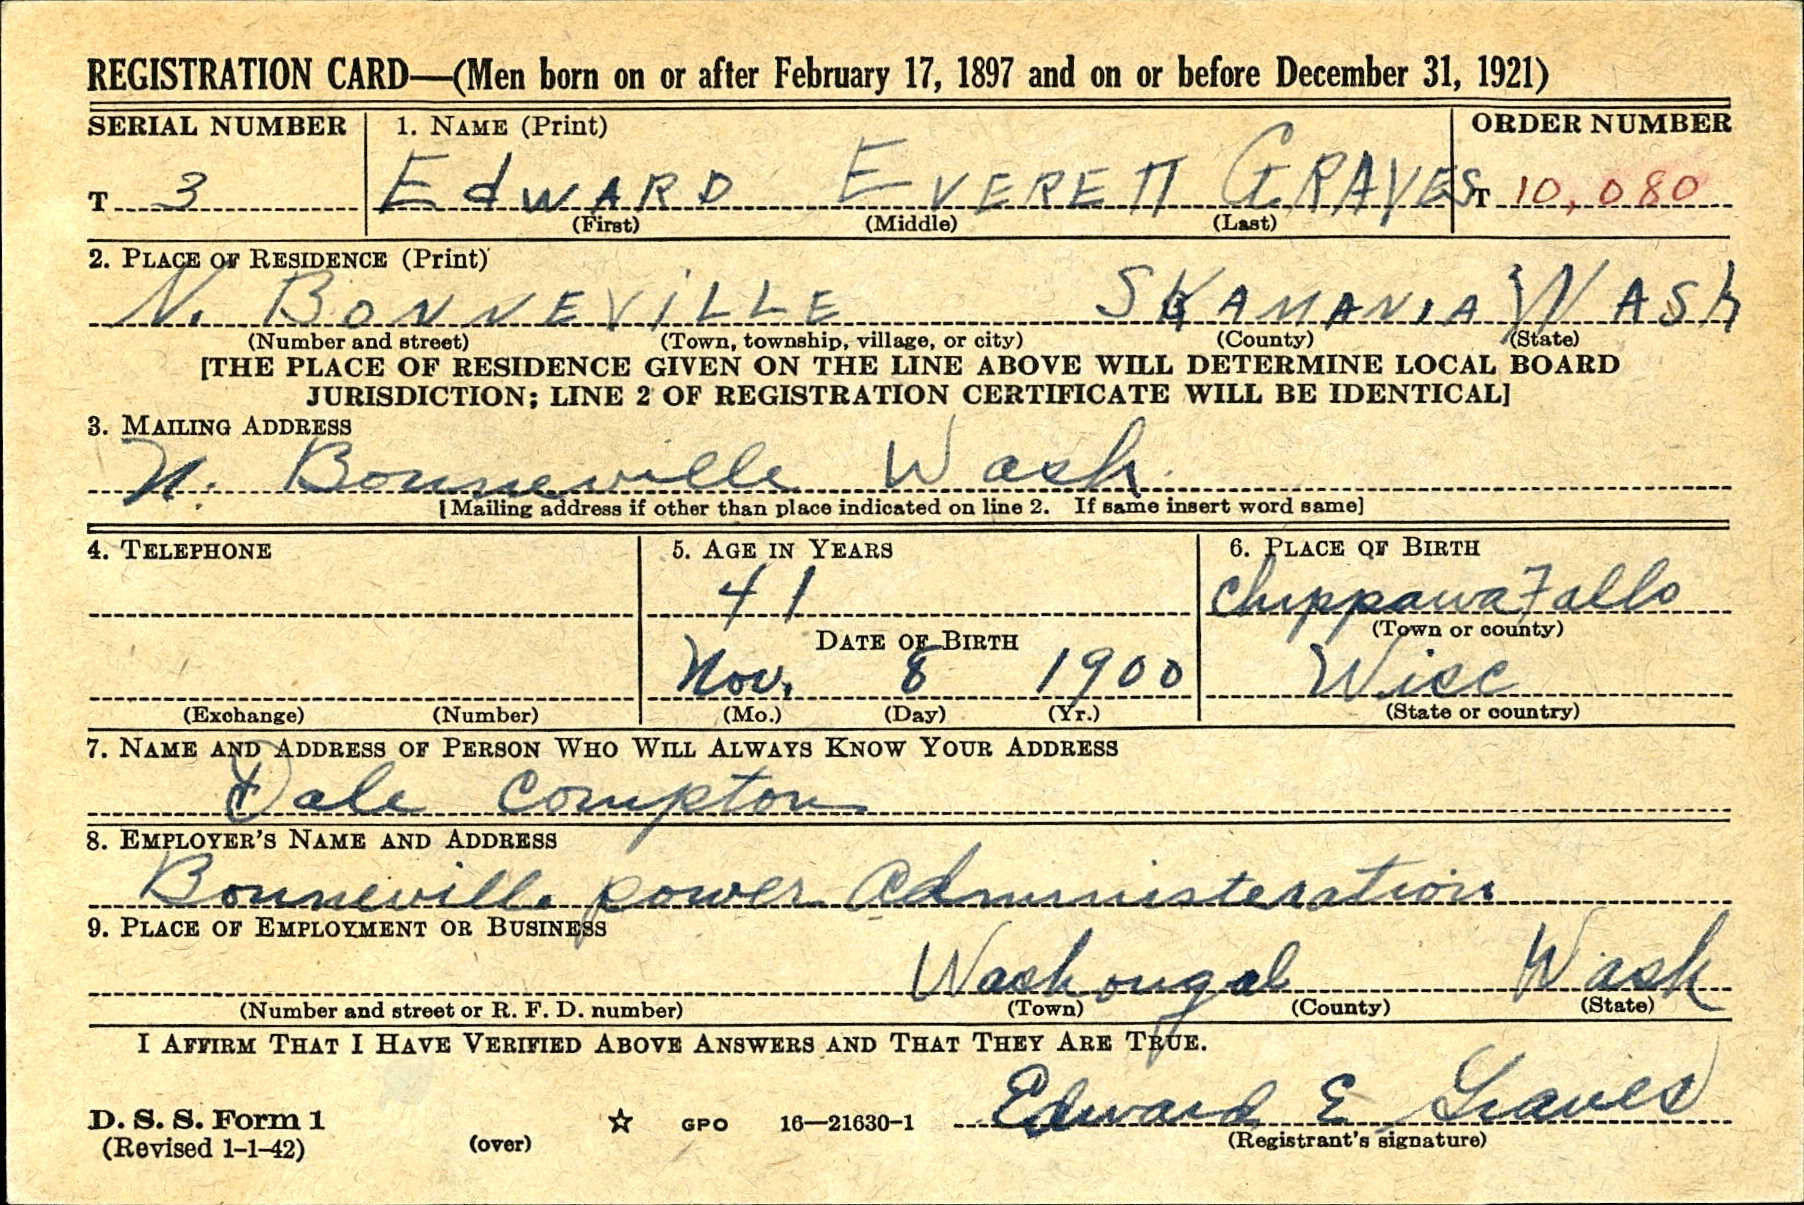 REGISTRATION CARD—(Men born on or after February 17, 1897 and on or before December 31, 1921)
SERIAL NUMBER 1. NAME (Print) ORDER NUMBER
T 3 EdWARD EVERETT GRAVES T 10,080
(First) (Middle) (Last)
2. PLACE OF RESIDENCE (Print)
N. BONNEViLLE SKAMANIA WASh
(Number and street) (Town, township, village, or city) (County) (State)
[THE PLACE OF RESIDENCE GIVEN ON THE LINE ABOVE WILL DETERMINE LOCAL BOARD
JURISDICTION; LINE 2 OF REGISTRATION CERTIFICATE WILL BE IDENTICAL]
3. MAILING ADDRESS
N. Bonneville Wash.
[Mailing address if other than place indicated on line 2. If same insert word same]
4. TELEPHONE 5. AGE IN YEARS 6. PLACE OF BIRTH
41 Chippawa Falls
DATE OF BIRTH (Town or county)
Nov. 8 1900 Wisc
(Exchange) (Number) (Mo.) (Day) (Yr.) (State or country)
7. NAME AND ADDRESS OF PERSON WHO WILL ALWAYS KNOW YOUR ADDRESS
Dale Compton
8. EMPLOYER'S NAME AND ADDRESS
Bonneville power Administeration
9. PLACE OF EMPLOYMENT OR BUSINESS
Washougal Wash
(Number and street or R. F. D. number) (Town) (County) (State)
I AFFIRM THAT I HAVE VERIFIED ABOVE ANSWERS AND THAT THEY ARE TRUE.
Edward E Graves
D. S. S. Form 1 ☆ GPO 16—21630-1
(Revised 1-1-42) (over) (Registrant's signature)